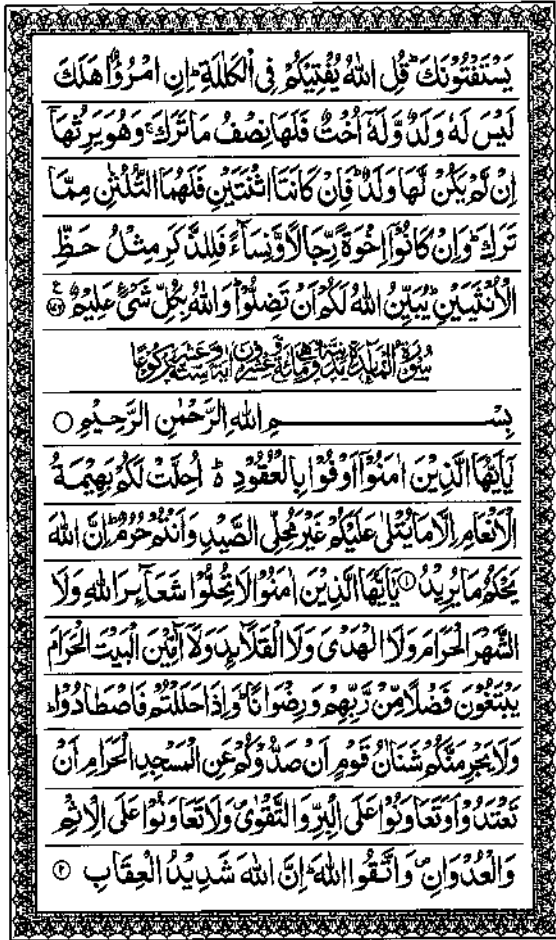 يَسْتَفْتُوْنَكَ ؕ قُلِ اللّٰهُ يُفْتِيْكُمْ فِى الْكَلٰلَةِ ؕ اِنِ امْرُؤٌا هَلَكَ
لَيْسَ لَهٗ وَلَدٌ وَّلَهٗۤ اُخْتٌ فَلَهَا نِصْفُ مَا تَرَكَ ۚ وَهُوَ يَرِثُهَاۤ
اِنْ لَّمْ يَكُنْ لَّهَا وَلَدٌ ؕ فَاِنْ كَانَتَا اثْنَتَيْنِ فَلَهُمَا الثُّلُثٰنِ مِمَّا
تَرَكَ ؕ وَاِنْ كَانُوْۤا اِخْوَةً رِّجَالًا وَّنِسَآءً فَلِلذَّكَرِ مِثْلُ حَظِّ
الْاُنْثَيَيْنِ ؕ يُبَيِّنُ اللّٰهُ لَكُمْ اَنْ تَضِلُّوْا ؕ وَاللّٰهُ بِكُلِّ شَىْءٍ عَلِيْمٌ ۧ
سُوْرَةُ الْمَآئِدَةِ مَدَنِيَّةٌ وَّهِىَ مِائَةٌ وَّعِشْرُوْنَ اٰيَةً وَّسِتَّةَ عَشَرَ رُكُوْعًا
بِسْمِ اللّٰهِ الرَّحْمٰنِ الرَّحِيْمِ
يٰۤاَيُّهَا الَّذِيْنَ اٰمَنُوْۤا اَوْفُوْا بِالْعُقُوْدِ ؕ اُحِلَّتْ لَكُمْ بَهِيْمَةُ
الْاَنْعَامِ اِلَّا مَا يُتْلٰى عَلَيْكُمْ غَيْرَ مُحِلِّى الصَّيْدِ وَاَنْتُمْ حُرُمٌ ؕ اِنَّ اللّٰهَ
يَحْكُمُ مَا يُرِيْدُ ۱ يٰۤاَيُّهَا الَّذِيْنَ اٰمَنُوْا لَا تُحِلُّوْا شَعَآئِرَ اللّٰهِ وَلَا
الشَّهْرَ الْحَرَامَ وَلَا الْهَدْىَ وَلَا الْقَلَآئِدَ وَلَاۤ آٰمِّيْنَ الْبَيْتَ الْحَرَامَ
يَبْتَغُوْنَ فَضْلًا مِّنْ رَّبِّهِمْ وَرِضْوَانًا ؕ وَاِذَا حَلَلْتُمْ فَاصْطَادُوْا ؕ
وَلَا يَجْرِمَنَّكُمْ شَنَاٰنُ قَوْمٍ اَنْ صَدُّوْكُمْ عَنِ الْمَسْجِدِ الْحَرَامِ اَنْ
تَعْتَدُوْا ۘ وَتَعَاوَنُوْا عَلَى الْبِرِّ وَالتَّقْوٰى ۪ وَلَا تَعَاوَنُوْا عَلَى الْاِثْمِ
وَالْعُدْوَانِ ۪ وَاتَّقُوا اللّٰهَ ؕ اِنَّ اللّٰهَ شَدِيْدُ الْعِقَابِ ۲